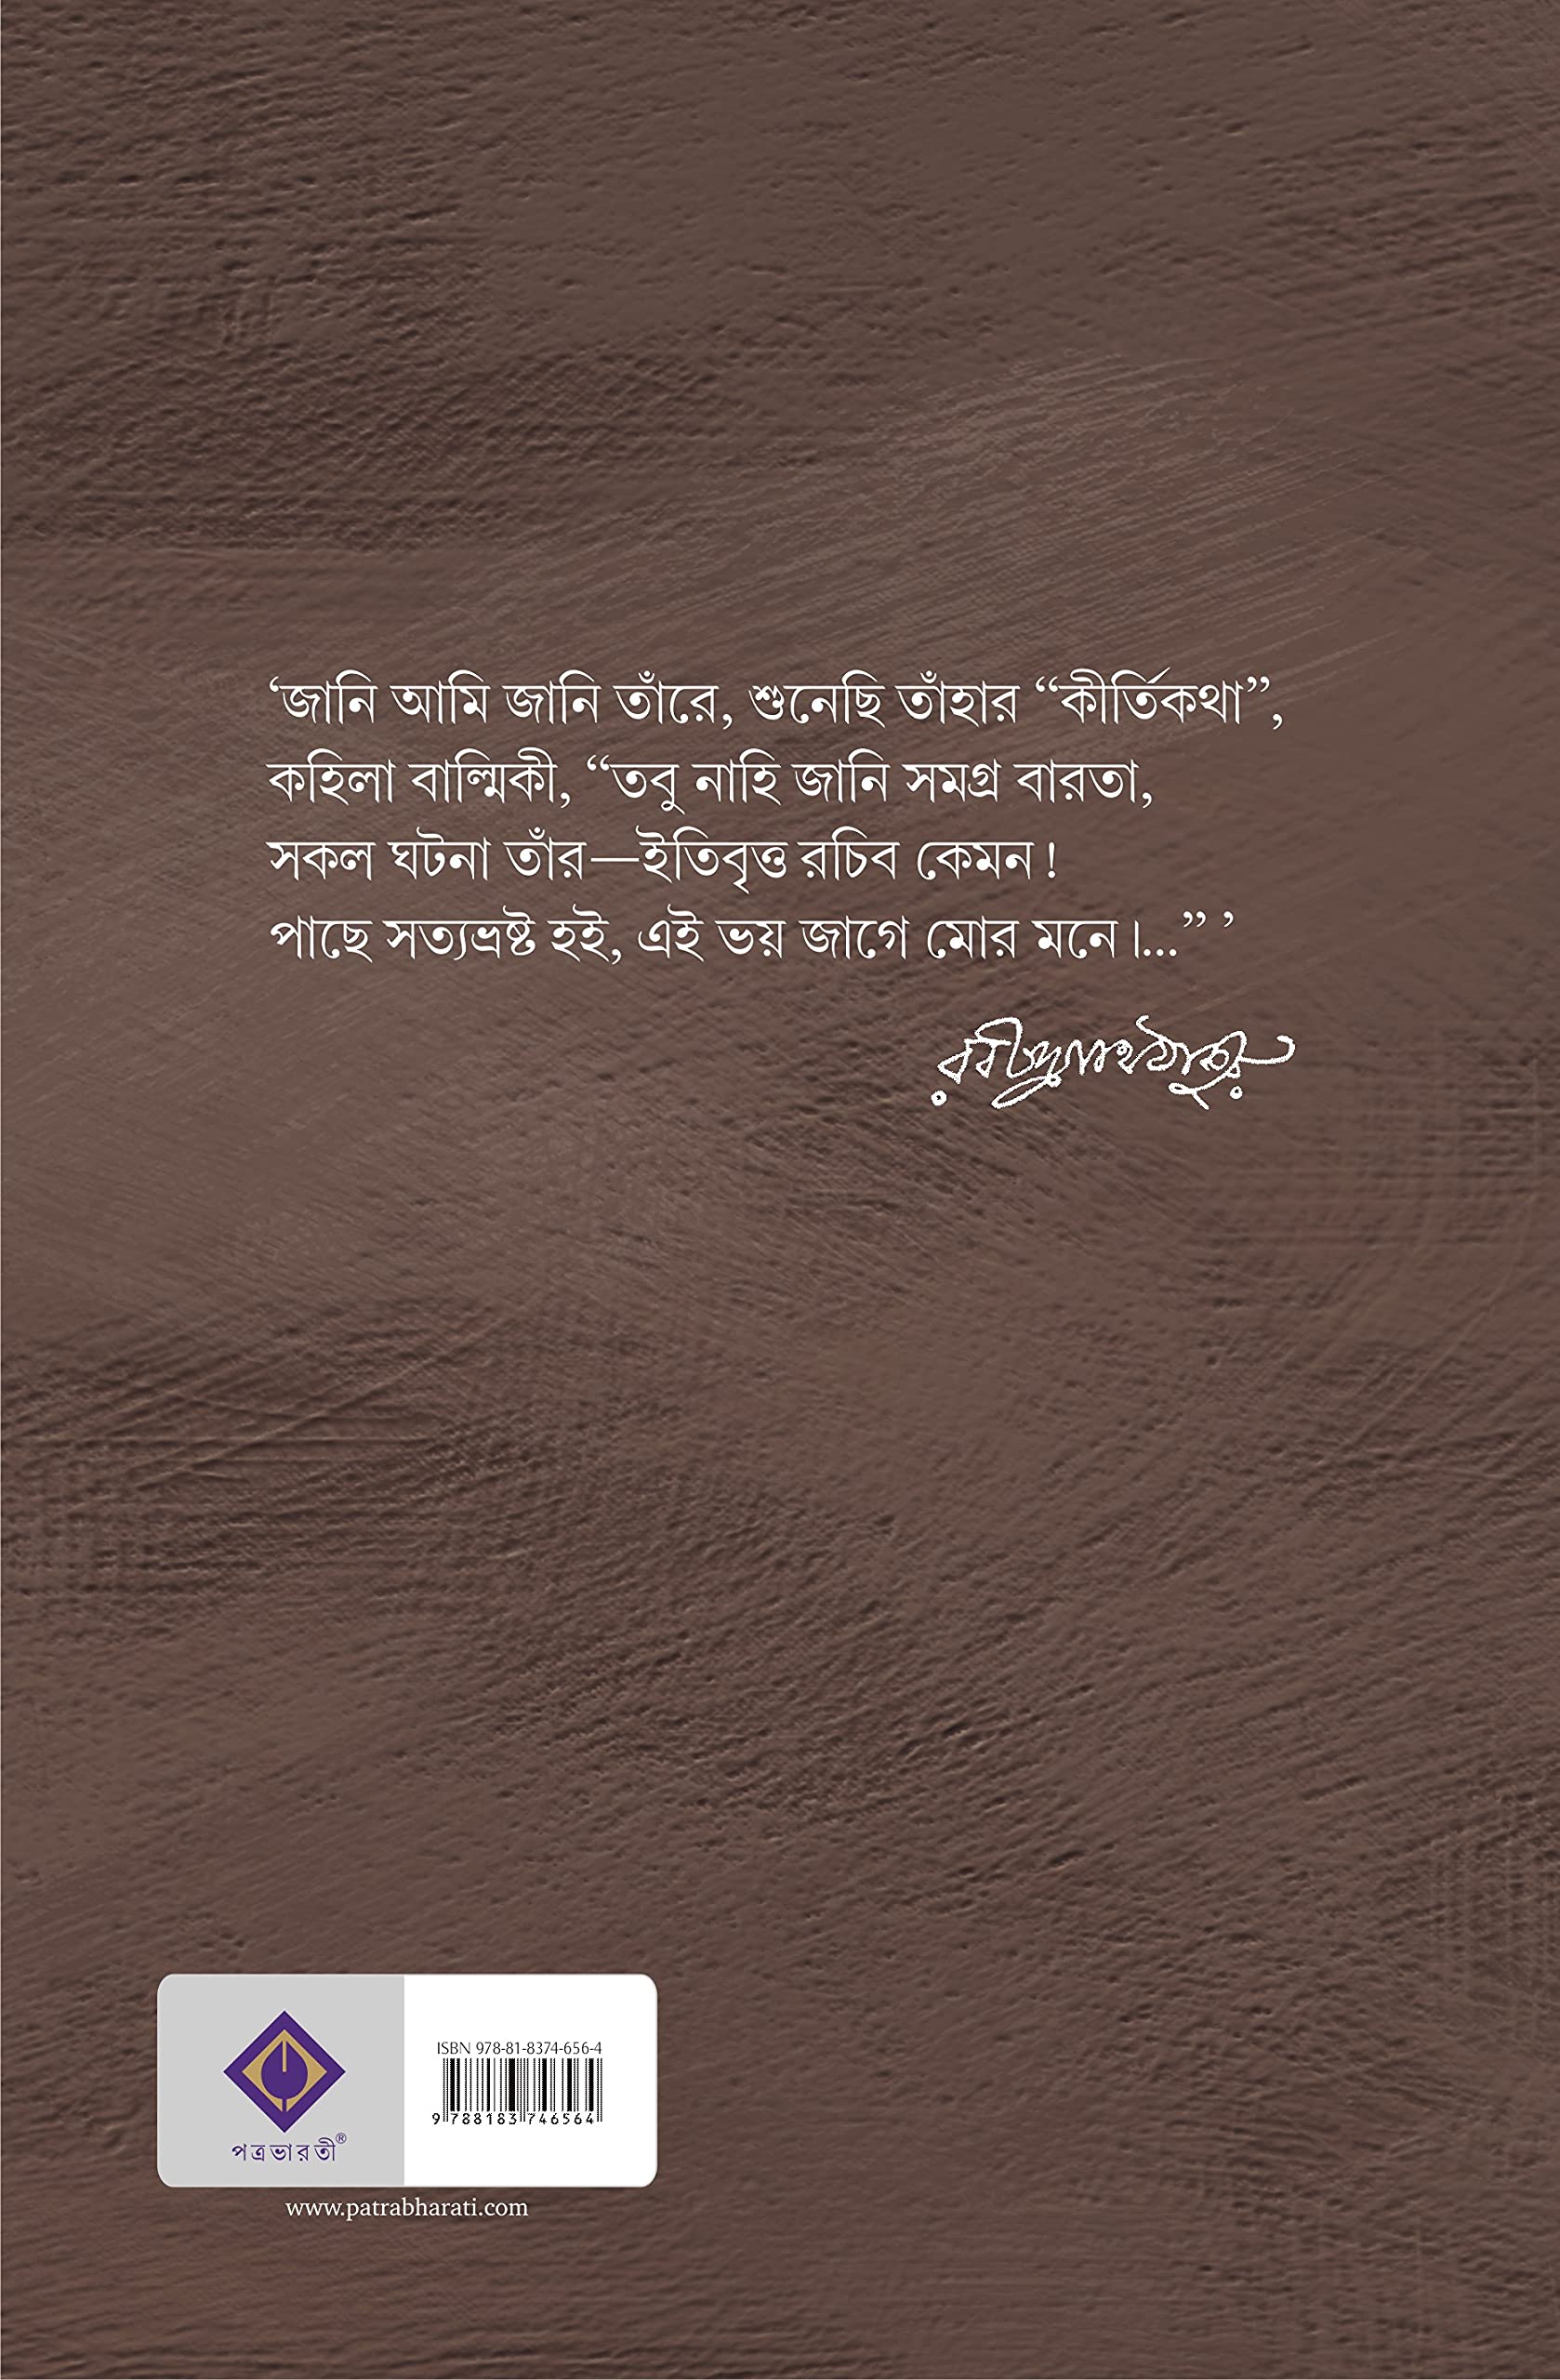 ‘জানি আমি জানি তাঁরে, শুনেছি তাঁহার “কীর্তিকথা”,
কহিলা বাল্মিকী, “তবু নাহি জানি সমগ্র বারতা,
সকল ঘটনা তাঁর—ইতিবৃত্ত রচিব কেমন!
পাছে সত্যভ্রষ্ট হই, এই ভয় জাগে মোর মনে।...” ’
রবীন্দ্রনাথ ঠাকুর
ISBN 978-81-8374-656-4
9 788183 746564
পত্রভারতী®
www.patrabharati.com